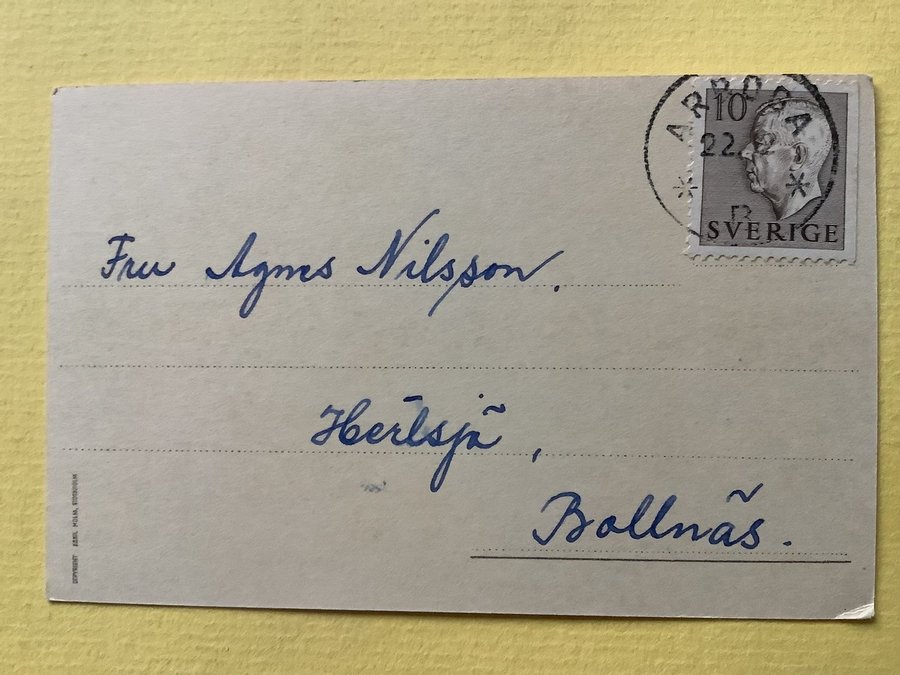 ARBOGA
22.
10
SVERIGE
Fru Agnes Nilsson.
Hertsjä,
Bollnäs.
COPYRIGHT AXEL
STOCKHOLM